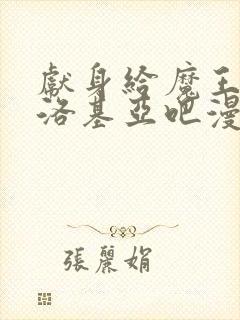 獻身給魔王
洛基亞吧漫
張麗娟